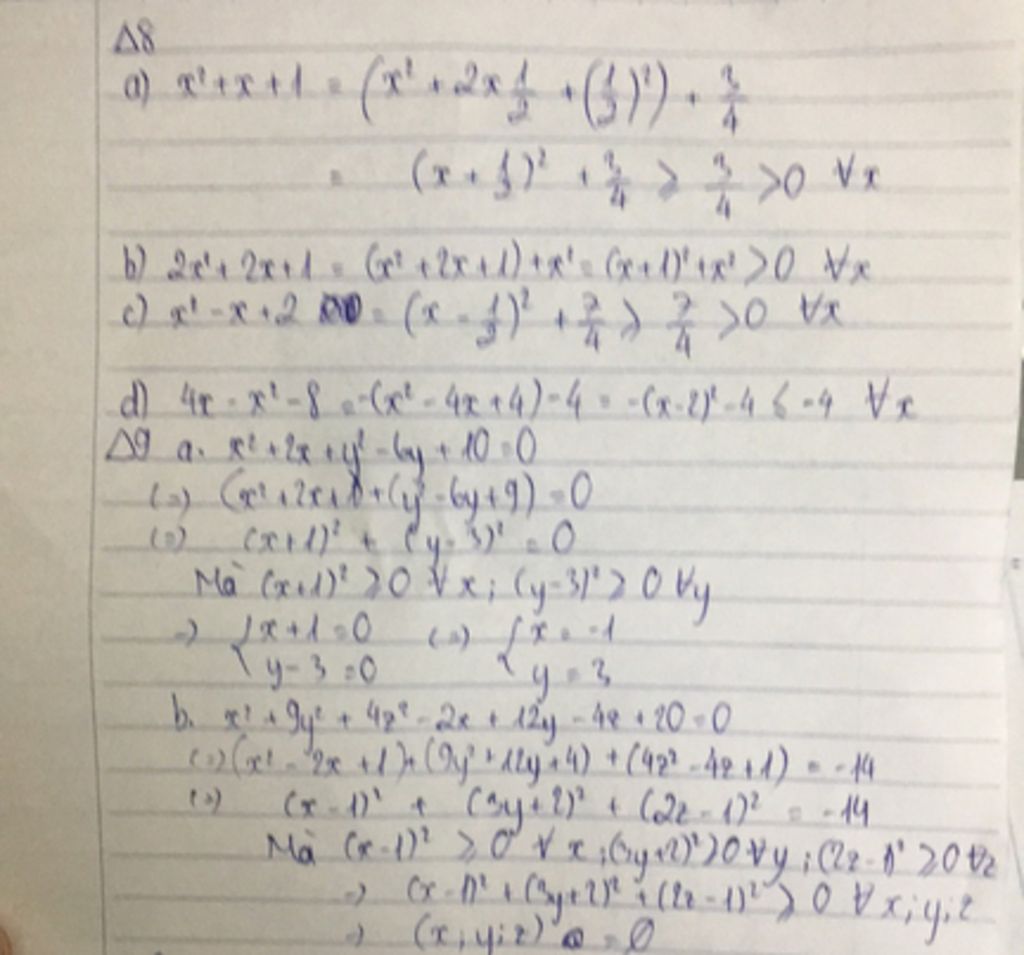 Δ8
a) x² + x + 1 = (x² + 2x 1/2 + (1/2)²) + 3/4
= (x + 1/2)² + 3/4 ≥ 3/4 > 0 ∀x
b) 2x² + 2x + 1 = (x² + 2x + 1) + x² = (x+1)² + x² > 0 ∀x
c) x² - x + 2 = (x - 1/2)² + 7/4 ≥ 7/4 > 0 ∀x
d) 4x - x² - 8 = -(x² - 4x + 4) - 4 = -(x-2)² - 4 ≤ -4 ∀x
Δ9 a. x² + 2x + y² - 6y + 10 = 0
(=) (x² + 2x + 1) + (y² - 6y + 9) = 0
(=) (x+1)² + (y - 3)² = 0
Mà (x+1)² ≥ 0 ∀x ; (y-3)² ≥ 0 ∀y
=) { x + 1 = 0 (=) { x = -1
y - 3 = 0 y = 3
b. x² + 9y² + 4z² - 2x + 12y - 4z + 20 = 0
(=) (x² - 2x + 1) + (9y² + 12y + 4) + (4z² - 4z + 1) = -14
(=) (x - 1)² + (3y + 2)² + (2z - 1)² = -14
Mà (x-1)² ≥ 0 ∀x ; (3y+2)² ≥ 0 ∀y ; (2z-1)² ≥ 0 ∀z
=) (x-1)² + (3y+2)² + (2z-1)² ≥ 0 ∀x;y;z
=) (x;y;z) = ∅